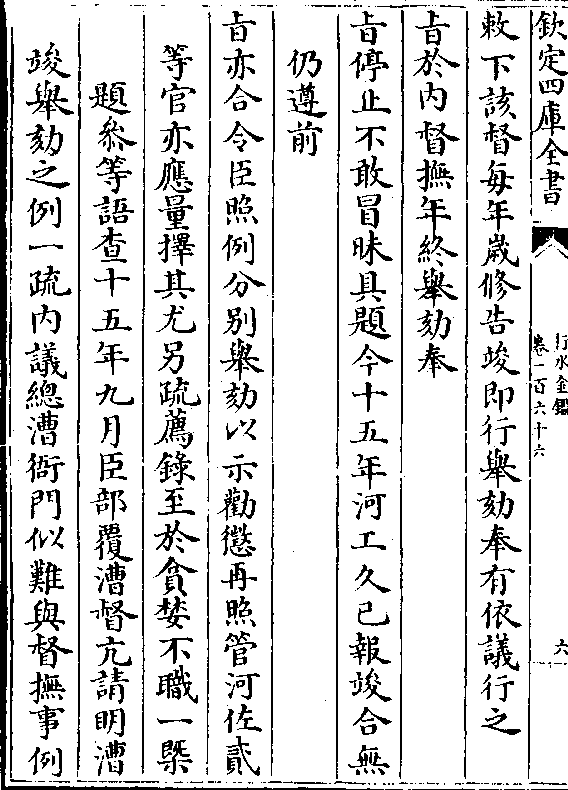 欽定四庫全書
行水金鑑
卷一百六十六
六
敕下該督每年歲修告竣即行舉劾奉有依議行之
㫖於内督撫年終舉劾奉
㫖停止不敢冒昧具題今十五年河工久已報竣合無
仍遵前
㫖亦合令臣照例分別舉劾以示勸懲再照管河佐貳
等官亦應量擇其尤另疏薦錄至於貪婪不職一槩
題叅等語查十五年九月臣部覆漕督亢請明漕
竣舉劾之例一疏内議總漕衙門似難與督撫事例